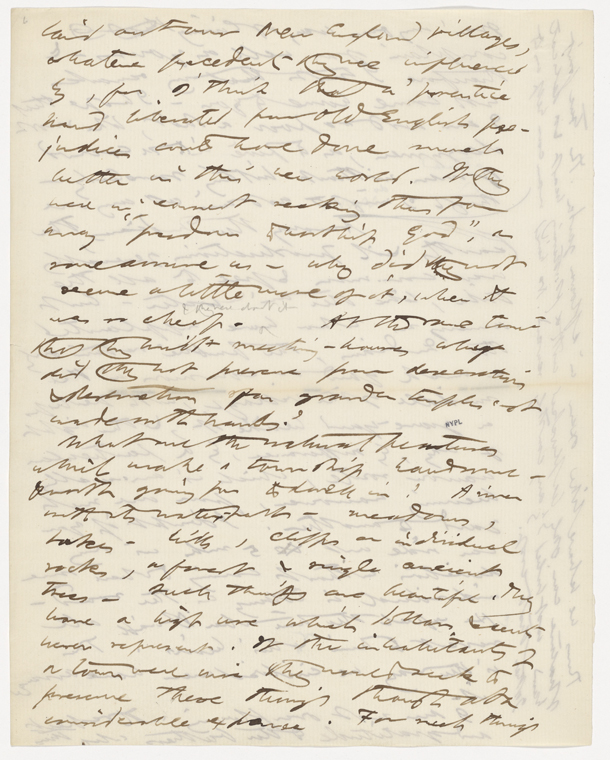 laid out our New England villages,
whatever precedent they were influenced
by, for I think that a practice
hand liberated from Old English pre-
judices could have done much
better in this new world. If they
were in earnest seeking thus far
away "freedom to worship God", as
some assure us — why did they not
secure a little more of it, when it
was so cheap — At the same time
that they built meeting-houses why
did they not preserve from desecration
& destruction far grander temples not
made with hands?
What are the natural features
which make a township handsome —
& worth going far to dwell in? A river
with its water-falls — meadows,
lakes — hills, cliffs or individual
rocks, a forest & single ancient
trees — such things are beautiful. They
have a high use which dollars & cents
never represent. If the inhabitants of
a town were wise they would seek to
preserve these things though at a
considerable expense. For such things
NYPL